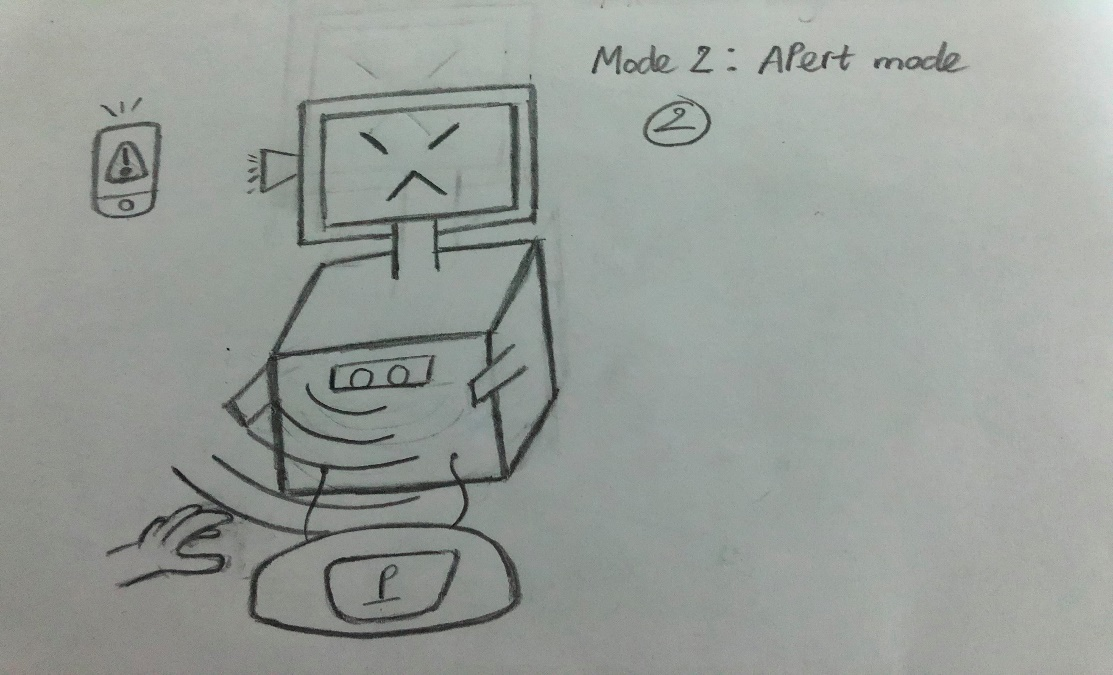 Mode 2: APert mode
2
!
P